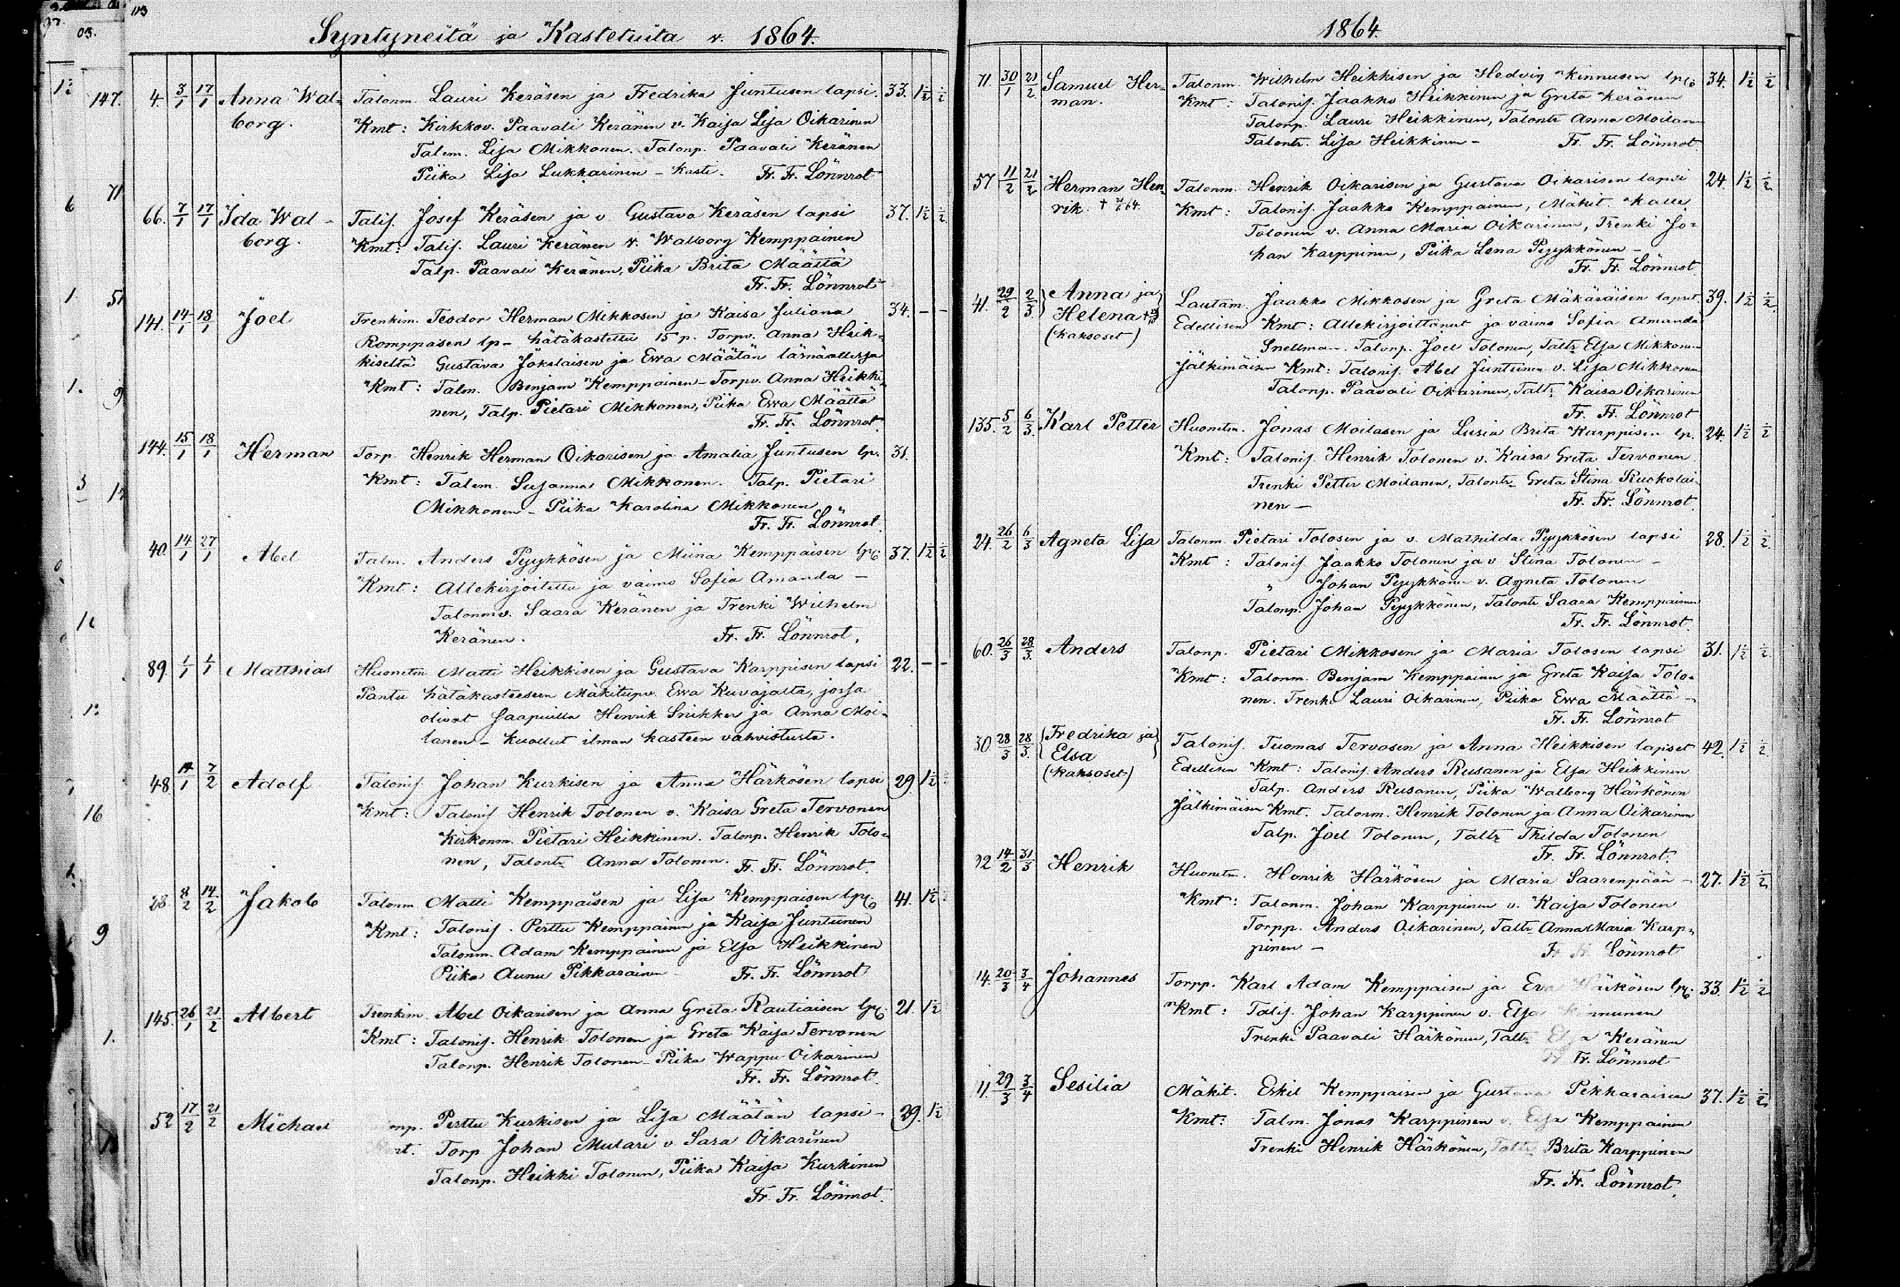 113
Syntyneitä ja Kastetuita v. 1864.
147. 4. 3/1 17/1 Anna Wal- Talonm. Lauri Keräsen ja Fredrika Juntusen lapsi. 33. 1½ ½
borg. Kmt: Kirkkov. Paavali Keränen v. Kaisa Lisa Oikarinen
Talem. Lisa Mikkonen. Talonp. Paavali Keränen
Piika Lisa Lukkarinen - Kasti. Fr. Fr. Lönnrot
66. 7/1 17/1 Ida Wal- Talij. Josef Keräsen ja v Gustava Keräsen lapsi 37. 1½ ½
borg. Kmt: Talij. Lauri Keränen v. Walborg Kemppainen
Talp. Paavali Keränen, Piika Brita Määttä
Fr. Fr. Lönnrot
141. 14/1 18/1 Joel Trenkim. Teodor Herman Mikkosen ja Kaisa Juliana 34. - -
Romppasen lp- hätäkastettu 15 p. Torpv. Anna Heik-
kiseltä Gustava Jökelaisen ja Ewa Määtän läsnäollessa
Kmt: Talm. Benjam Kemppainen - Torpv. Anna Heikki-
nen, Talp. Pietari Mikkonen, Piika Ewa Määttä
Fr. Fr. Lönnrot
144. 15/1 18/1 Herman Torp. Henrik Herman Oikarisen ja Amalia Juntusen lp. 31.
Kmt: Talem. Susanna Mikkonen. Talp. Pietari
Mikkonen - Piika Karolina Mikkonen
Fr. Fr. Lönnrot
40. 14/1 27/1 Abel Talm. Anders Pyykkösen ja Miina Kemppaisen lps 37. 1½ ½
Kmt: Allekirjoitettu ja vaimo Sofia Amanda -
Talonmv. Saara Keränen ja Trenki Wilhelm
Keränen. Fr. Fr. Lönnrot.
89. 1/1 1/1 Matthias Huonetm Matti Heikkisen ja Gustava Karppisen lapsi 22. - -
Pantu hätäkasteeseen Mäkitupv. Ewa Kuvajalta, jossa
olivat saapuilla Henrik Snikker ja Anna Moi-
lanen - Kuollut ilman kasteen vahvistusta.
48. 14/1 7/2 Adolf Talonij Johan Kurkisen ja Anna Härkösen lapsi 29 1½
Kmt: Talonij Henrik Tolonen v. Kaisa Greta Tervonen
Kirkonm. Pietari Heikkinen. Talonp. Henrik Tolo-
nen, Talontr Anna Tolonen. Fr. Fr. Lönnrot.
28 8/2 14/2 Jakob Talonm Matti Kemppaisen ja Lisa Kemppaisen lps 41. 1½
Kmt: Talonij. Perttu Kemppainen ja Kaisa Juntunen
Talonm. Adam Kemppainen ja Elsa Heikkinen
Piika Aunu Pikkarainen Fr. Fr. Lönnrot
145. 26/1 21/2 Albert Trenkim. Abel Oikarisen ja Anna Greta Rautiaisen lps 21. 1½
Kmt: Talonij. Henrik Tolonen ja Greta Kaisa Tervonen
Talonp. Henrik Tolonen - Piika Wappu Oikarinen
Fr. Fr. Lönnrot.
52 17/2 21/2 Michael Perttu Kurkisen ja Lisa Määtän lapsi - 29. 1½
Torp Johan Mulari v. Sara Oikarinen
Talonp. Heikki Tolonen, Piika Kaisa Kurkinen
Fr. Fr. Lönnrot.
1864.
71. 30/1 21/2 Samuel Her- Talonm. Wilhelm Heikkisen ja Hedvig Kinnusen lps 34. 1½ ½
man. Kmt: Talonij. Jaakko Heikkinen ja Greta Keränen
Talonp. Lauri Heikkinen, Talontr Anna Moilanen
Talontr. Lisa Heikkinen - Fr. Fr. Lönnrot.
57 11/2 21/2 Herman Hen- Talonm. Henrik Oikarisen ja Gustava Oikarisen lapsi 24. 1½ ½
rik. Kmt: Talonij. Jaakko Kemppainen, Mäkit. Kalle
Tolonen v. Anna Maria Oikarinen, Trenki Jo-
han Karppinen, Piika Lena Pyykkönen -
Fr. Fr. Lönnrot
41. 29/2 2/3 Anna ja Lautam. Jaakko Mikkosen ja Greta Mäkäräisen lapset. 39. 1½ ½
Helena Edellisen Kmt: Allekirjoittanut ja vaimo Sofia Amanda
(kaksoset) Snellman. Talonp. Joel Tolonen, Taltr Elsa Mikkonen
Jälkimäisen Kmt: Talonij. Abel Juntunen v. Lisa Mikkonen
Talonp. Paavali Oikarinen, Taltr Kaisa Oikarinen
Fr. Fr. Lönnrot
135. 5/2 6/3 Karl Petter Huonetm. Jonas Moilasen ja Lusia Brita Karppisen lp. 24. 1½ ½
Kmt: Talonij. Henrik Tolonen v. Kaisa Greta Tervonen
Trenki Petter Moilanen, Talontr Greta Stina Ruokolai-
nen - Fr. Fr. Lönnrot
24. 26/2 6/3 Agneta Lisa Talonm Pietari Tolosen ja v. Mathilda Pyykkösen lapsi 28. 1½ ½
Kmt: Talonij Jaakko Tolonen ja v Stina Tolonen -
" Johan Pyykkönen v. Agneta Tolonen
Talonp. Johan Pyykkönen, Talontr Saara Kemppainen
Fr. Fr. Lönnrot.
60. 26/3 28/3 Anders Talonp. Pietari Mikkosen ja Maria Tolosen lapsi 31. 1½ ½
Kmt: Talonm. Benjam Kemppainen ja Greta Kaisa Tolo-
nen. Trenki Lauri Oikarinen, Piika Ewa Määttä -
Fr. Fr. Lönnrot
30. 28/3 28/3 Fredrika ja Talonij. Tuomas Tervosen ja Anna Heikkisen lapset 42. 1½ ½
Elsa Edellisen Kmt: Talonij. Anders Rusanen ja Elsa Heikkinen
(kaksoset) Talp. Anders Rusanen, Piika Walborg Härkönen
Jälkimäisen Kmt. Talonm. Henrik Tolonen ja Anna Oikarinen
Talp. Joel Tolonen, Taltr Thilda Tolonen
Fr. Fr. Lönnrot.
92 14/2 31/3 Henrik Huonetm. Henrik Härkösen ja Maria Saarenpään - 27. 1½ ½
Kmt: Talonm. Johan Karppinen v. Kaisa Tolonen
Torpp. Anders Oikarinen, Taltr Anna Maria Karp-
pinen - Fr. Fr. Lönnrot
14. 20/3 3/4 Johannes Torpp. Karl Adam Kemppaisen ja Eva Härkösen lps. 33. 1½ ½
Kmt: Talij. Johan Karppinen v. Elsa Kinnunen
Trenki Paavali Härkönen, Taltr Elsa Keränen
Fr. Fr. Lönnrot
11. 29/3 3/4 Sesilia Mäkit. Eskil Kemppaisen ja Gustava Pikkaraisen 37. 1½ ½
Kmt: Talm. Jonas Karppinen v. Elsa Kemppainen
Trenki Henrik Härkönen, Taltr Brita Karppinen
Fr. Fr. Lönnrot.